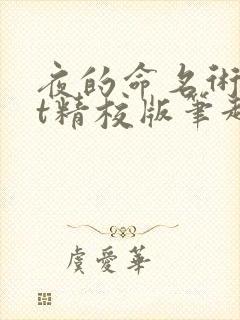 夜的命名術
t精校版筆趣
虞愛華